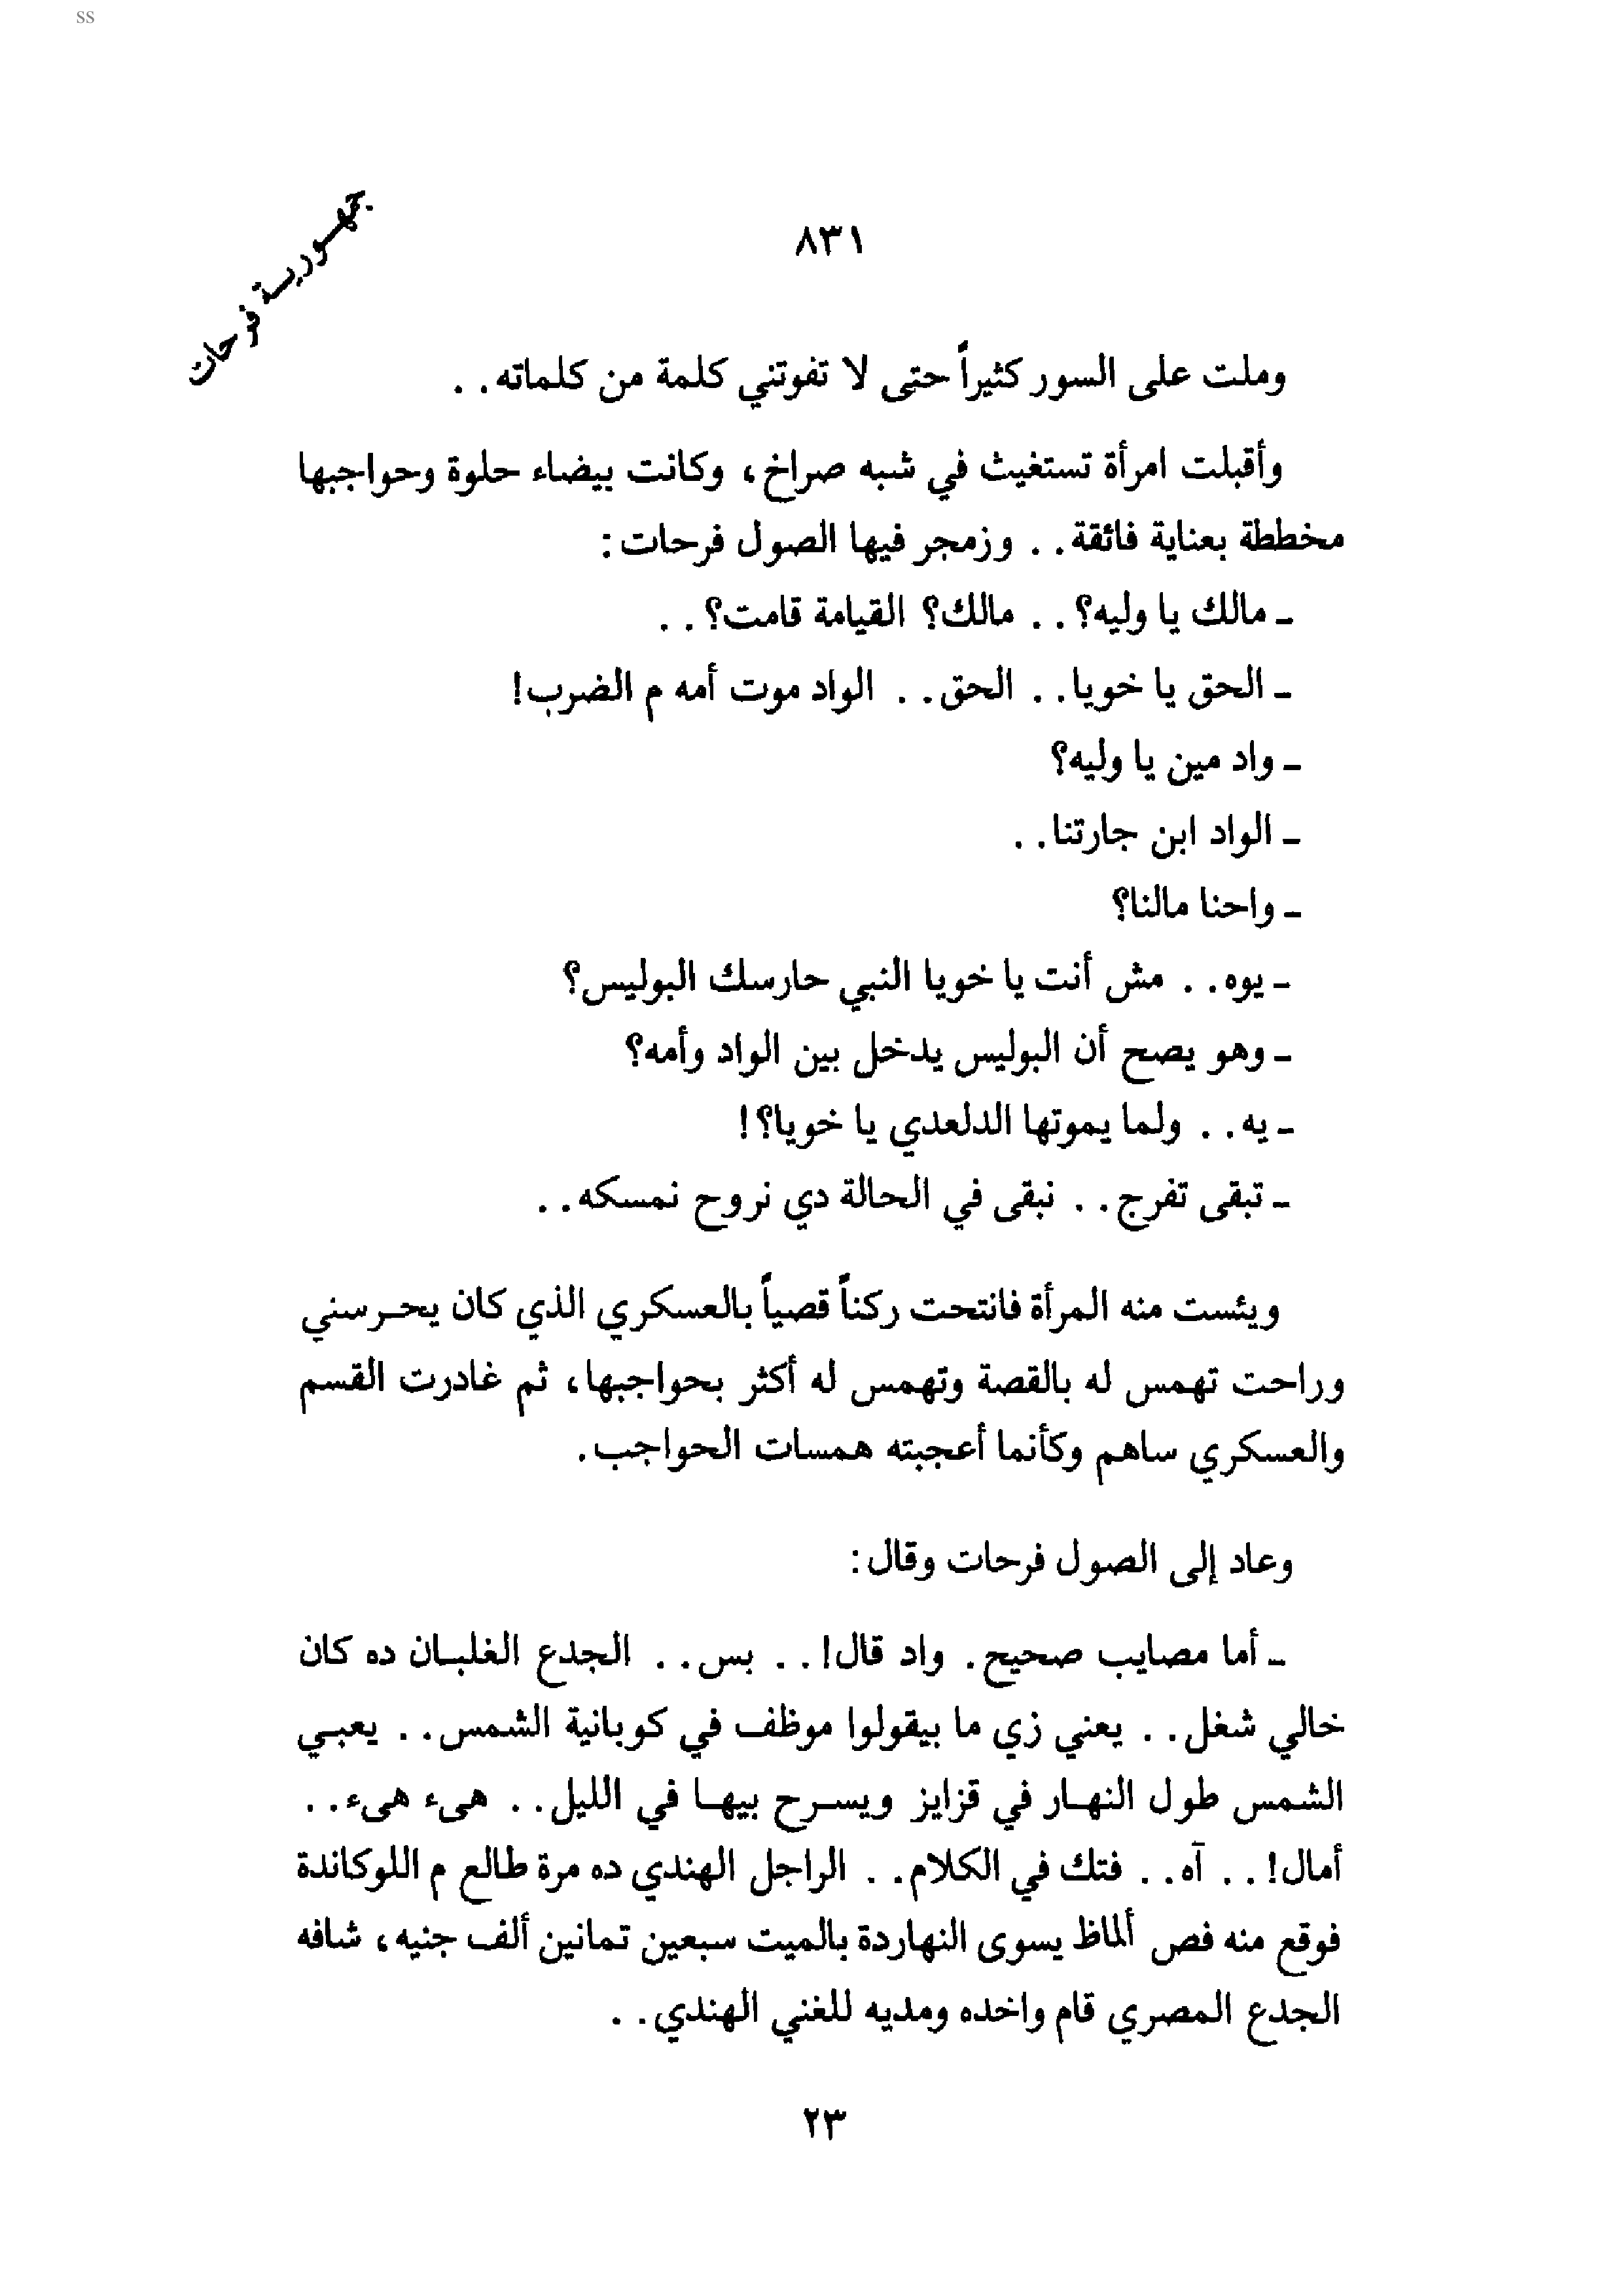 ss
جمهورية فرحات
٨٣١
وملت على السور كثيراً حتى لا تفوتني كلمة من كلماته. .
وأقبلت امرأة تستغيث في شبه صراخ، وكانت بيضاء حلوة وحواجبها
مخططة بعناية فائقة. . وزمجر فيها الصول فرحات:
ـ مالك يا وليه؟. . مالك؟ القيامة قامت؟. .
ـ الحق يا خويا. . الحق. . الواد موت أمه م الضرب!
ـ واد مين يا وليه؟
ـ الواد ابن جارتنا. .
ـ واحنا مالنا؟
ـ يوه. . مش أنت يا خويا النبي حارسك البوليس؟
ـ وهو يصح أن البوليس يدخل بين الواد وأمه؟
ـ يه. . ولما يموتها الدلعدي يا خويا؟!
ـ تبقى تفرج. . نبقى في الحالة دي نروح نمسكه. .
ويئست منه المرأة فانتحت ركناً قصياً بالعسكري الذي كان يحرسني
وراحت تهمس له بالقصة وتهمس له أكثر بحواجبها، ثم غادرت القسم
والعسكري ساهم وكأنما أعجبته همسات الحواجب.
وعاد إلى الصول فرحات وقال:
ـ أما مصايب صحيح. واد قال!. . بس. . الجدع الغلبان ده كان
خالي شغل. . يعني زي ما بيقولوا موظف في كوبانية الشمس. . يعبي
الشمس طول النهار في قزايز ويسرح بيها في الليل. . هىء هىء. .
أمال!. . آه. . فتك في الكلام. . الراجل الهندي ده مرة طالع م اللوكاندة
فوقع منه فص ألماظ يسوى النهاردة بالميت سبعين تمانين ألف جنيه، شافه
الجدع المصري قام واخده ومديه للغني الهندي. .
٢٣